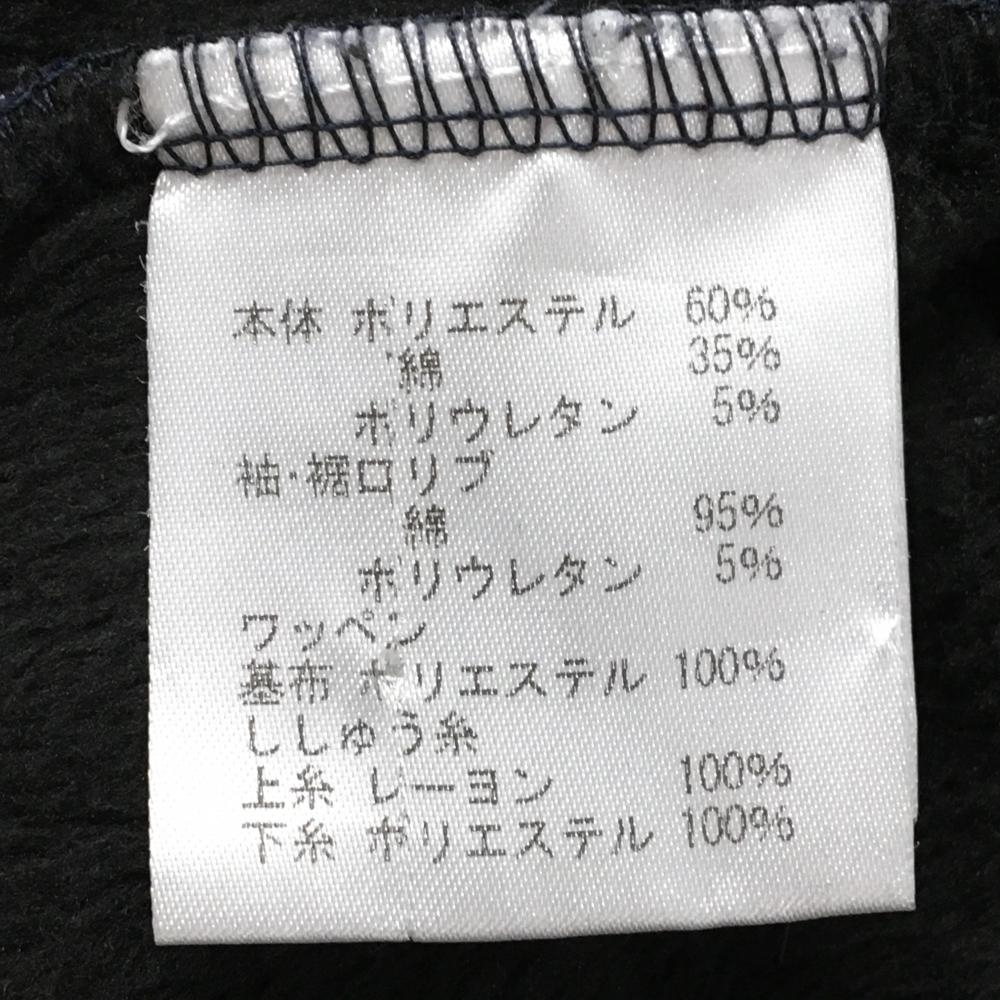 本体 ポリエステル 60%
綿 35%
ポリウレタン 5%
袖・裾口リブ
綿 95%
ポリウレタン 5%
ワッペン
基布 ポリエステル 100%
ししゅう糸
上糸 レーヨン 100%
下糸 ポリエステル 100%